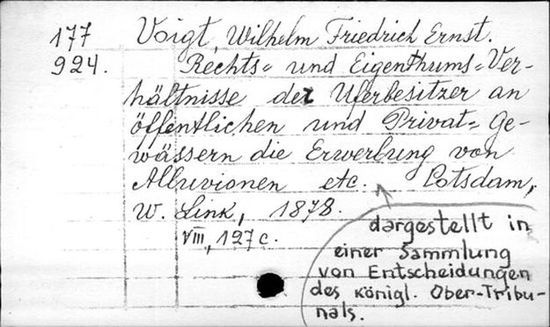 177
924.
Voigt, Wilhelm Friedrich Ernst.
Rechts= und Eigenthums=Ver-
hältnisse der Uferbesitzer an
öffentlichen und Privat=Ge-
wässern die Erwerbung von
Alluvionen etc. Potsdam,
W. Link, 1878.
VIII, 127 c.
dargestellt in
einer Sammlung
von Entscheidungen
des Königl. Ober-Tribu-
nals.